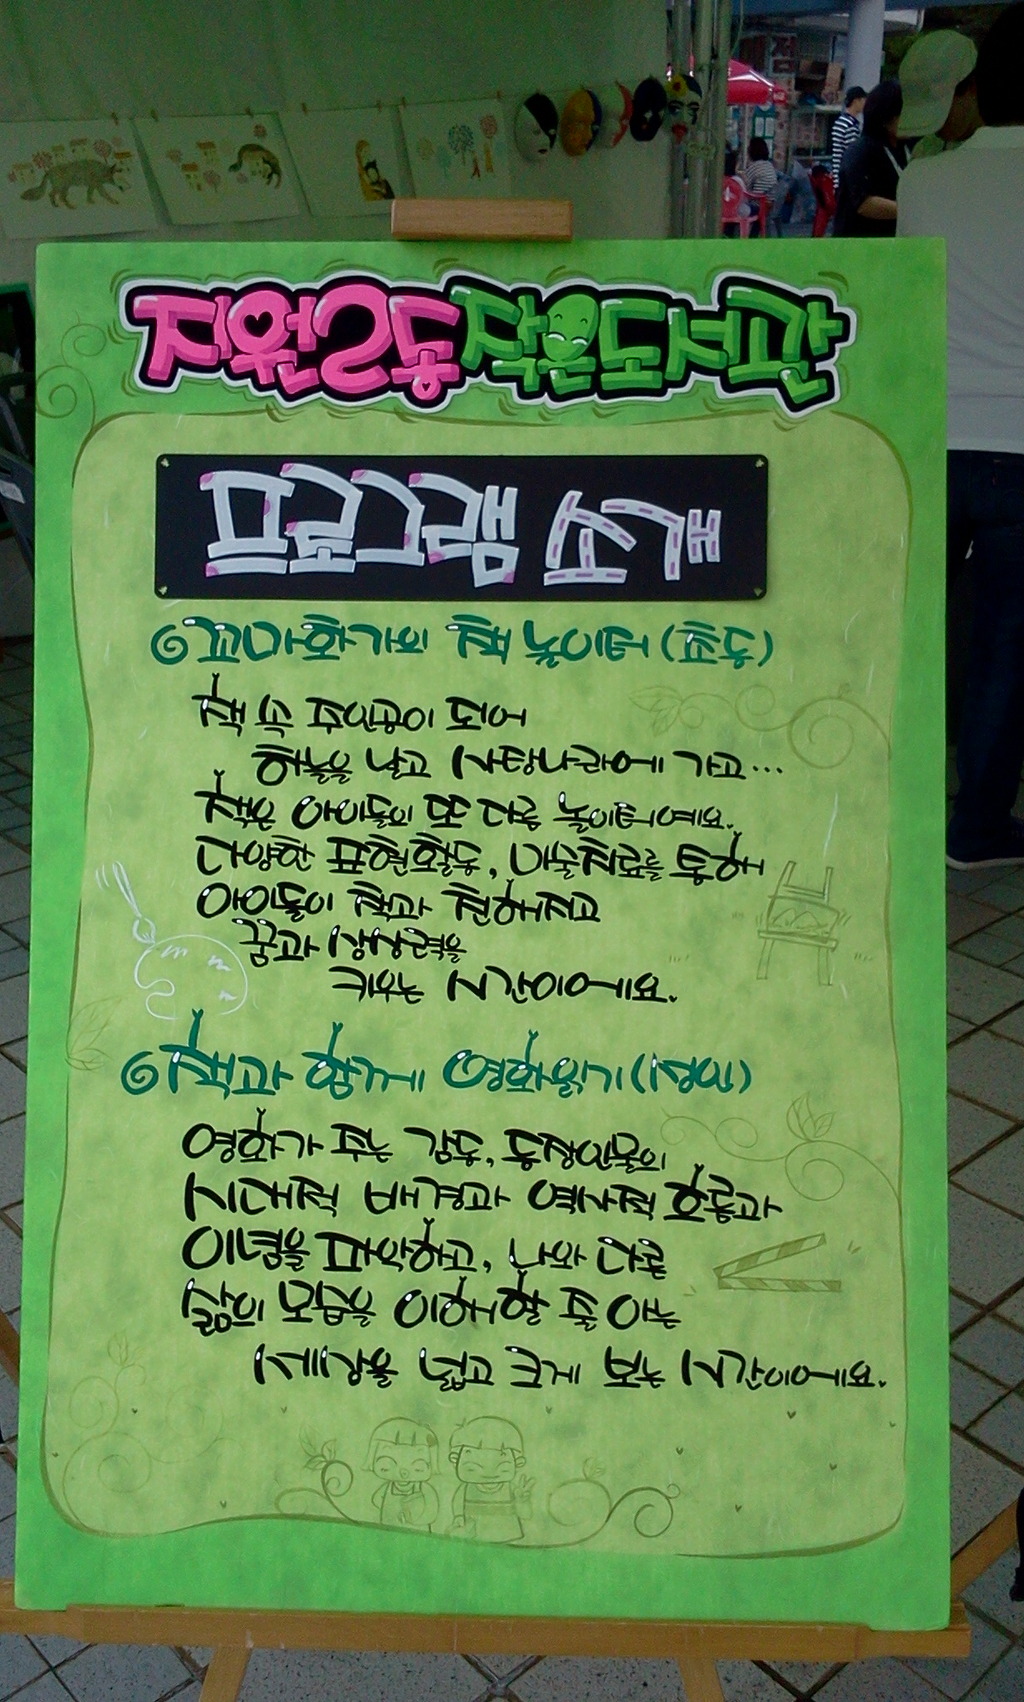 지원2동작은도서관
프로그램 소개
꼬마화가의 책 놀이터(초등)
책 속 주인공이 되어
하늘을 날고 사탕나라에 가고...
책은 아이들의 또 다른 놀이터예요.
다양한 표현활동, 미술치료를 통해
아이들이 책과 친해지고
꿈과 상상력을
키우는 시간이에요.
책과 함께 영화읽기(성인)
영화가 주는 감동, 등장인물의
시대적 배경과 역사적 흐름과
이념을 파악하고, 나와 다른
삶의 모습을 이해할 줄 아는
세상을 넓고 크게 보는 시간이에요.